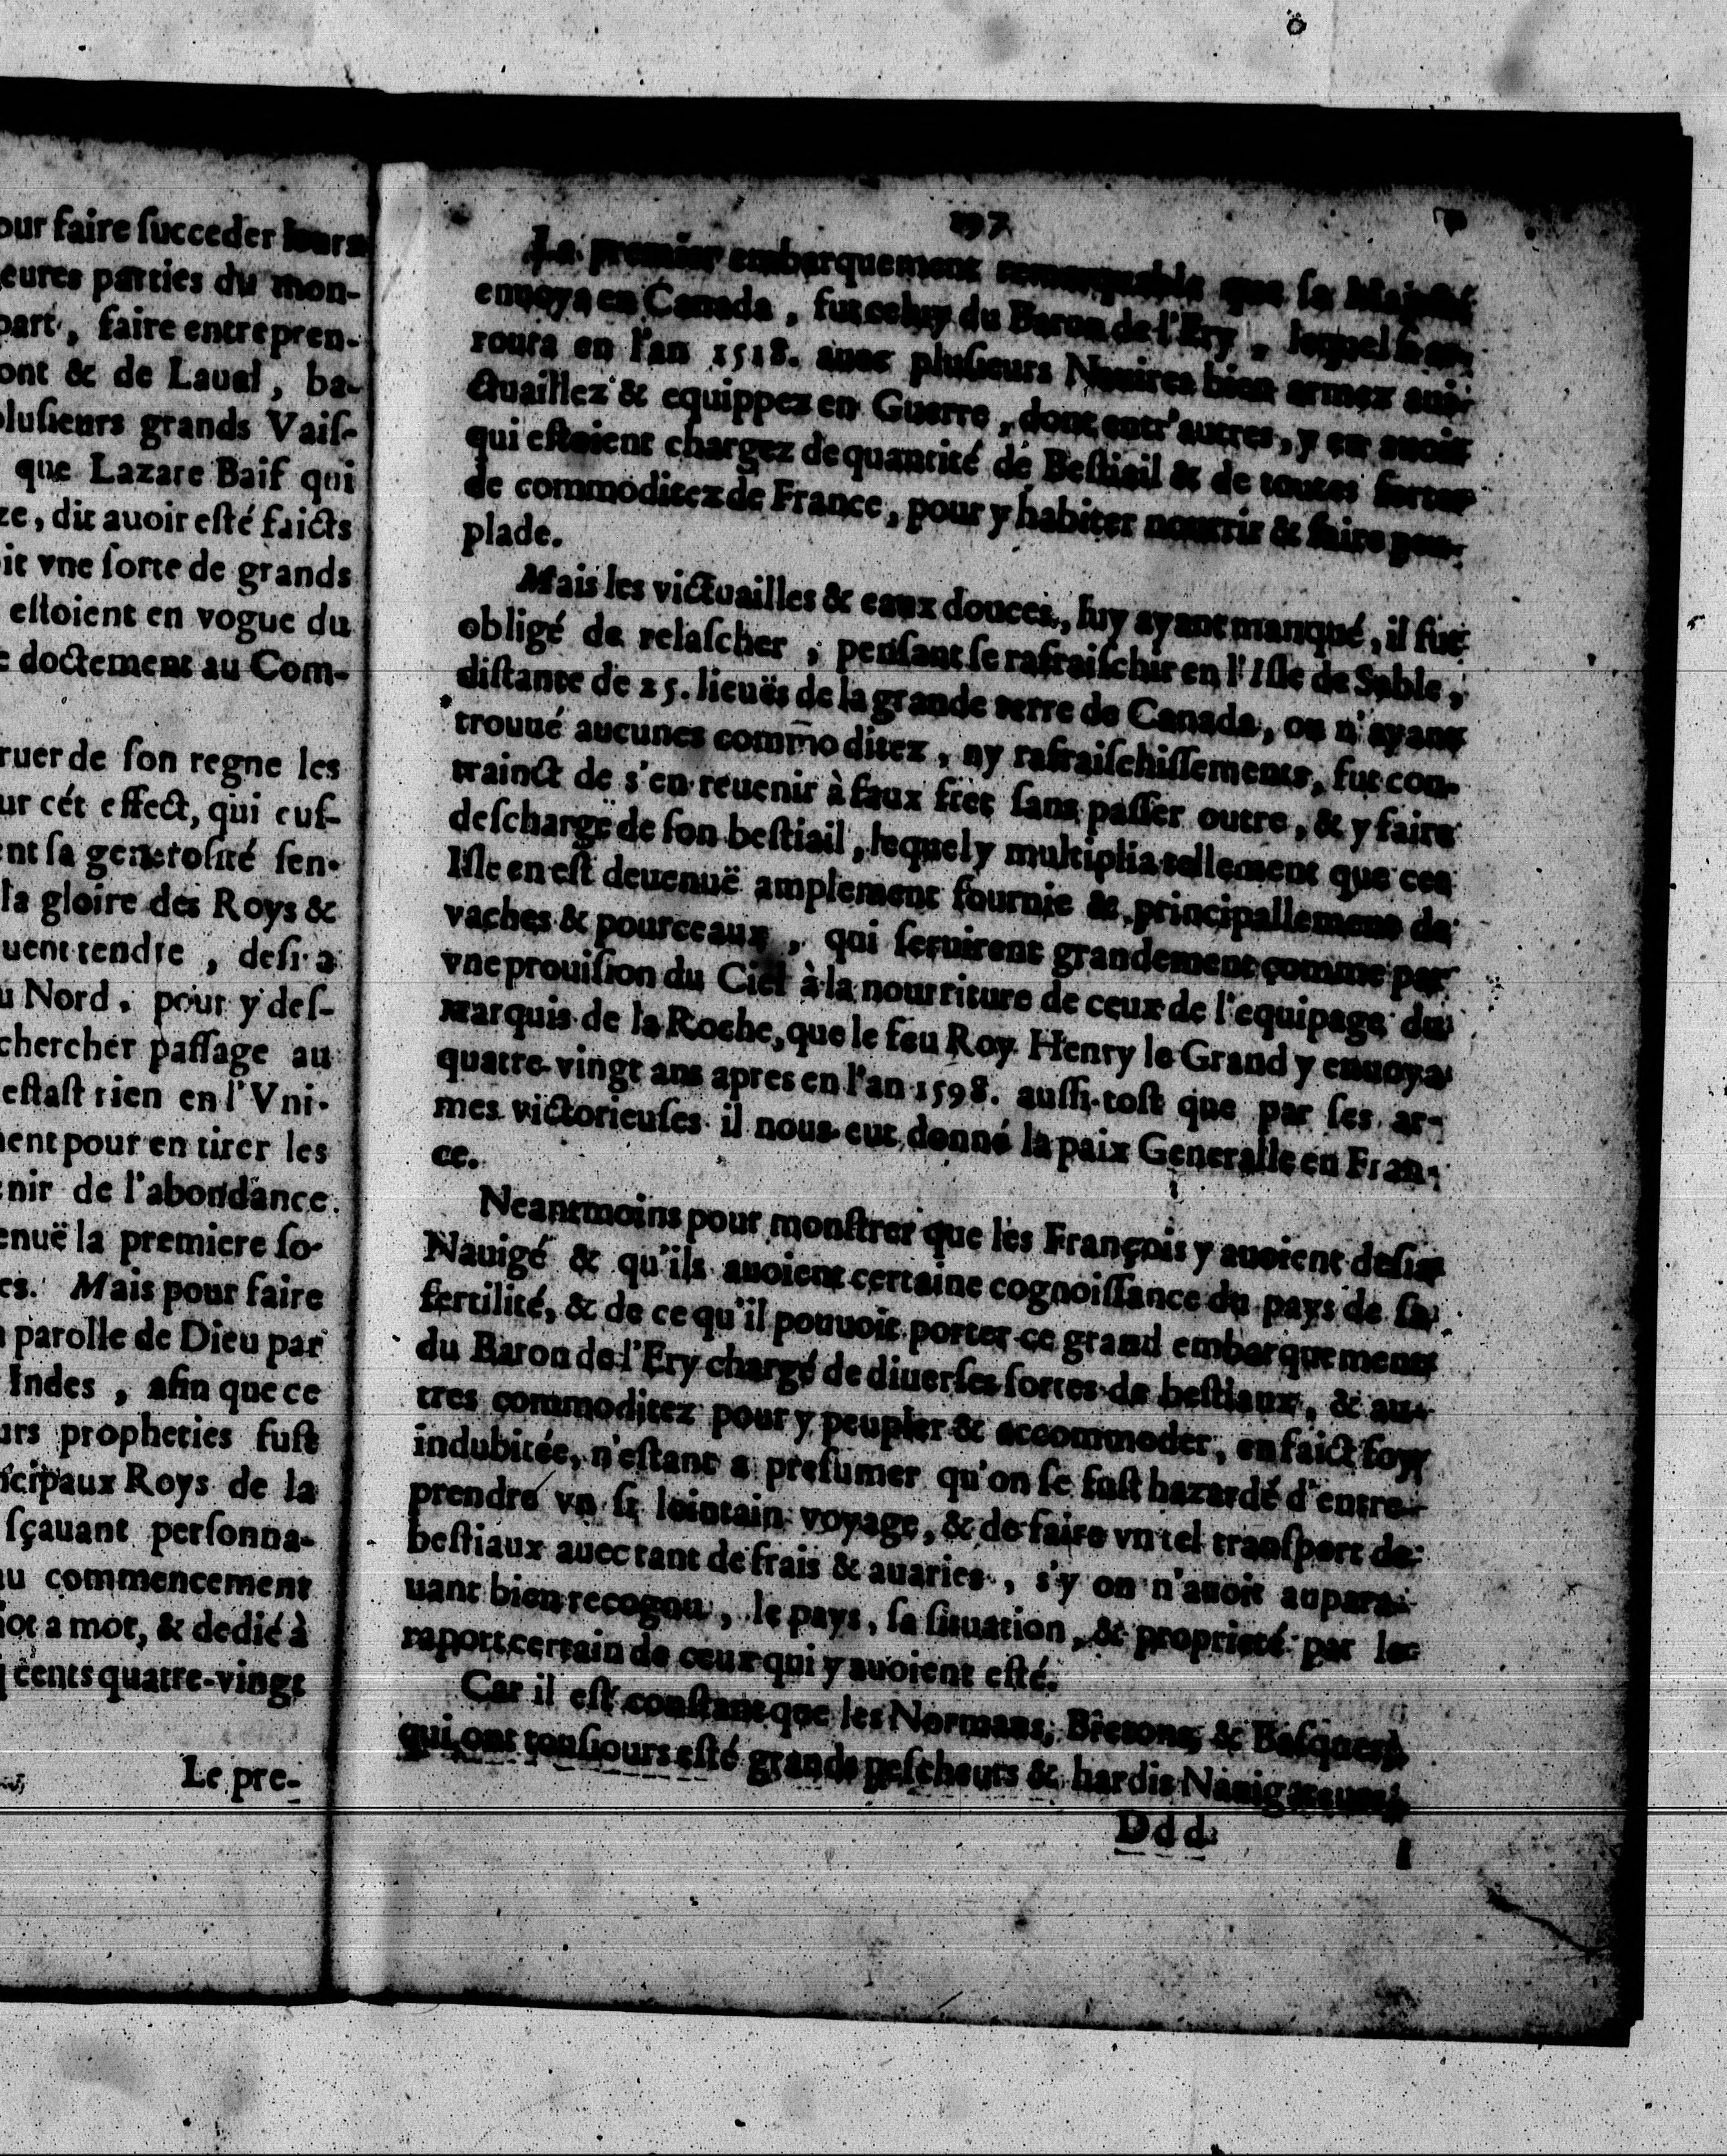 our faire ſucceder leurs
eures parties du mon-
part, faire entrepren-
ont & de Laual, ba-
pluſieurs grands Vaiſ-
que Lazare Baif qui
ze, dit auoir eſté faicts
oit vne ſorte de grands
eſtoient en vogue du
e doctement au Com-
ruer de ſon regne les
ur cét effect, qui euſ-
ent ſa generoſité ſen-
la gloire des Roys &
uent tendre, deſira
u Nord, pour y deſ-
chercher paſſage au
eſtaſt rien en l'Vni-
ment pour en tirer les
enir de l'abondance
enuë la premiere ſo-
es. Mais pour faire
a parolle de Dieu par
Indes, afin que ce
urs propheties fuſt
ncipaux Roys de la
ſçauant perſonna-
au commencement
mot a mot, & dedié à
q cents quatre-vingt
Le pre-
197
Le premier embarquement remarquable que ſa Majeſté
enuoya en Canada, fut celuy du Baron de l'Ery, lequel
routa en l'an 1518. auec pluſieurs Nauires bien armez aui-
ctuaillez & equippez en Guerre, dont entr'autres, y en auoit
qui eſtoient chargez de quantité de Beſtiail & de toutes ſortes
de commoditez de France, pour y habiter nourrir & faire peu-
plade.
Mais les victuailles & eaux douces, luy ayant manqué, il fut
obligé de relaſcher, penſant ſe rafraiſchir en l'Iſle de Sable,
diſtante de 25. lieuës de la grande terre de Canada, ou n'ayant
trouué aucunes commõditez, ny rafraiſchiſſements, fut con-
trainct de s'en reuenir à faux fret ſans paſſer outre, & y faire
deſcharge de ſon beſtiail, lequel y multiplia tellement que cet
Iſle en eſt deuenuë amplement fournie & principallement de
vaches & pourceaux, qui ſeruirent grandement comme par
vne prouiſion du Ciel à la nourriture de ceux de l'equipage du
Marquis de la Roche, que le feu Roy Henry le Grand y enuoya
quatre-vingt ans apres en l'an 1598. auſſi-toſt que par ſes ar-
mes victorieuſes il nous eut donné la paix Generalle en Fran-
ce.
Neantmoins pour monſtrer que les François y auoient deſia
Nauigé & qu'ils auoient certaine cognoiſſance du pays de ſa
fertilité, & de ce qu'il pouuoit porter ce grand embarquement
du Baron de l'Ery chargé de diuerſes ſortes de beſtiaux, & au-
tres commoditez pour y peupler & accommoder, en faict foy
indubitée, n'eſtant a preſumer qu'on ſe fuſt hazardé d'entre-
prendre vn ſi lointain voyage, & de faire vn tel tranſport de
beſtiaux auec tant de frais & auaries, s'y on n'auoit aupara-
uant bien recognu, le pays, ſa ſituation, & proprieté par le
raport certain de ceux qui y auoient eſté.
Car il eſt conſtant que les Normans, Bretons, & Baſques,
qui ont touſiours eſté grands peſcheurs & hardis Nauigateurs,
Ddd